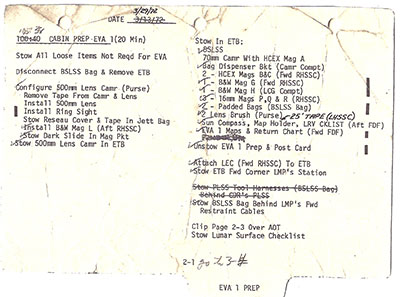 3/29/72
DATE 3/13/72
TOO+40 CABIN PREP EVA 1(20 Min)
Stow All Loose Items Not Reqd For EVA
Disconnect BSLSS Bag & Remove ETB
Configure 500mm Lens Camr (Purse)
Remove Tape From Camr & Lens
Install 500mm Lens
Install Ring Sight
Stow Reseau Cover & Tape In Jett Bag
Install B&W Mag L (Aft RHSSC)
Stow Dark Slide In Mag Pkt
Stow 500mm Lens Camr In ETB
Stow In ETB:
BSLSS
70mm Camr With HCEX Mag A
Bag Dispenser Bkt (Camr Compt)
2 - HCEX Mags B&C (Fwd RHSSC)
1 - B&W Mag G (Fwd RHSSC)
1 - B&W Mag H (LCG Compt)
3 - 16mm Mags P,Q & R (Fwd RHSSC)
2 - Padded Bags (BSLSS Bag)
Lens Brush (Purse) 25' TAPE (LHSSC)
Sun Compass, Map Holder, LRV CKLIST (Aft FDF)
EVA 1 Maps & Return Chart (Fwd FDF)
Unstow EVA 1 Prep & Post Card
Attach LEC (Fwd RHSSC) To ETB
Stow ETB Fwd Corner LMP's Station
Stow PLSS Tool Harnesses (BSLSS Bag)
Behind CDR's PLSS
Stow BSLSS Bag Behind LMP's Fwd
Restraint Cables
Clip Page 2-3 Over AOT
Stow Lunar Surface Checklist
2-1 go to 3-
EVA 1 PREP